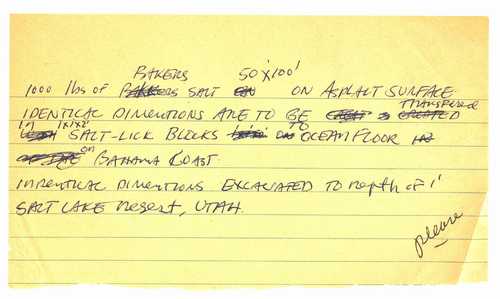 BAKERS 50'X100'
1000 lbs of BAKERS SALT ON ASPHALT SURFACE
IDENTICAL DIMENTIONS ARE TO BE TRANSFERED
IN 1'X1'X2' SALT-LICK BLOCKS TO OCEAN FLOOR
on BAHAMA COAST
IDENTICAL DIMENTIONS EXCAVATED TO Depth of 1'
SALT LAKE Desert, UTAH.
please